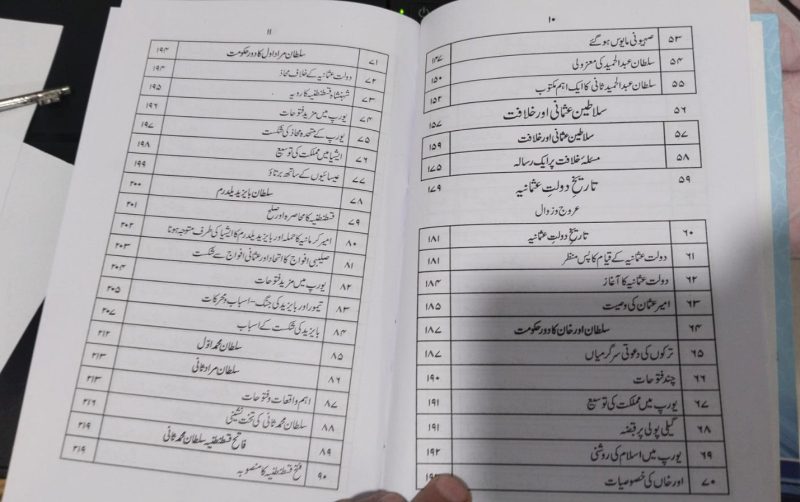 ۱۰
۵۳ صہیونی مایوس ہو گئے ۱۴۷
۵۴ سلطان عبدالحمید کی معزولی ۱۵۰
۵۵ سلطان عبدالحمید ثانی کا ایک اہم مکتوب ۱۵۲
۵۶ سلاطین عثمانی اور خلافت ۱۵۷
۵۷ سلاطین عثمانی اور خلافت ۱۵۹
۵۸ مسئلۂ خلافت پر ایک رسالہ ۱۷۵
۵۹ تاریخ دولت عثمانیہ ۱۷۹
عروج و زوال
۶۰ تاریخ دولتِ عثمانیہ ۱۸۱
۶۱ دولت عثمانیہ کے قیام کا پس منظر ۱۸۱
۶۲ دولت عثمانیہ کا آغاز ۱۸۴
۶۳ امیر عثمان کی وصیت ۱۸۵
۶۴ سلطان اور خان کا دور حکومت ۱۸۷
۶۵ ترکوں کی دعوتی سرگرمیاں ۱۸۷
۶۶ چند فتوحات ۱۹۰
۶۷ یورپ میں مملکت کی توسیع ۱۹۱
۶۸ گیلی پولی پر قبضہ ۱۹۱
۶۹ یورپ میں اسلام کی روشنی ۱۹۲
۷۰ اور خاں کی خصوصیات
۱۱
۷۱ سلطان مراد اول کا دور حکومت ۱۹۴
۷۲ دولت عثمانیہ کے خلاف محاذ ۱۹۴
۷۳ شہنشاہ قسطنطنیہ کا رویہ ۱۹۵
۷۴ یورپ میں مزید فتوحات ۱۹۶
۷۵ یورپ کے متحدہ محاذ کی شکست ۱۹۷
۷۶ ایشیا میں مملکت کی توسیع ۱۹۸
۷۷ عیسائیوں کے ساتھ برتاؤ ۱۹۹
۷۸ سلطان بایزید یلدرم ۲۰۰
۷۹ قسطنطنیہ کا محاصرہ اور صلح ۲۰۱
۸۰ امیر کرمانیہ کا حملہ اور بایزید یلدرم کا ایشیا کی طرف متوجہ ہونا ۲۰۲
۸۱ صلیبی افواج کا اتحاد اور عثمانی افواج سے شکست ۲۰۳
۸۲ یورپ میں مزید فتوحات ۲۰۴
۸۳ تیمور اور بایزید کی جنگ-اسباب و محرکات ۲۰۵
۸۴ بایزید کی شکست کے اسباب ۲۰۷
۸۵ سلطان محمد اوّل ۲۱۲
۸۶ سلطان مراد ثانی ۲۱۳
۸۷ اہم واقعات و فتوحات ۲۱۳
۸۸ سلطان محمد ثانی کی تخت نشینی ۲۱۶
۸۹ فاتح قسطنطنیہ سلطان محمد ثانی ۲۱۹
۹۰ فتح قسطنطنیہ کا منصوبہ ۲۱۹